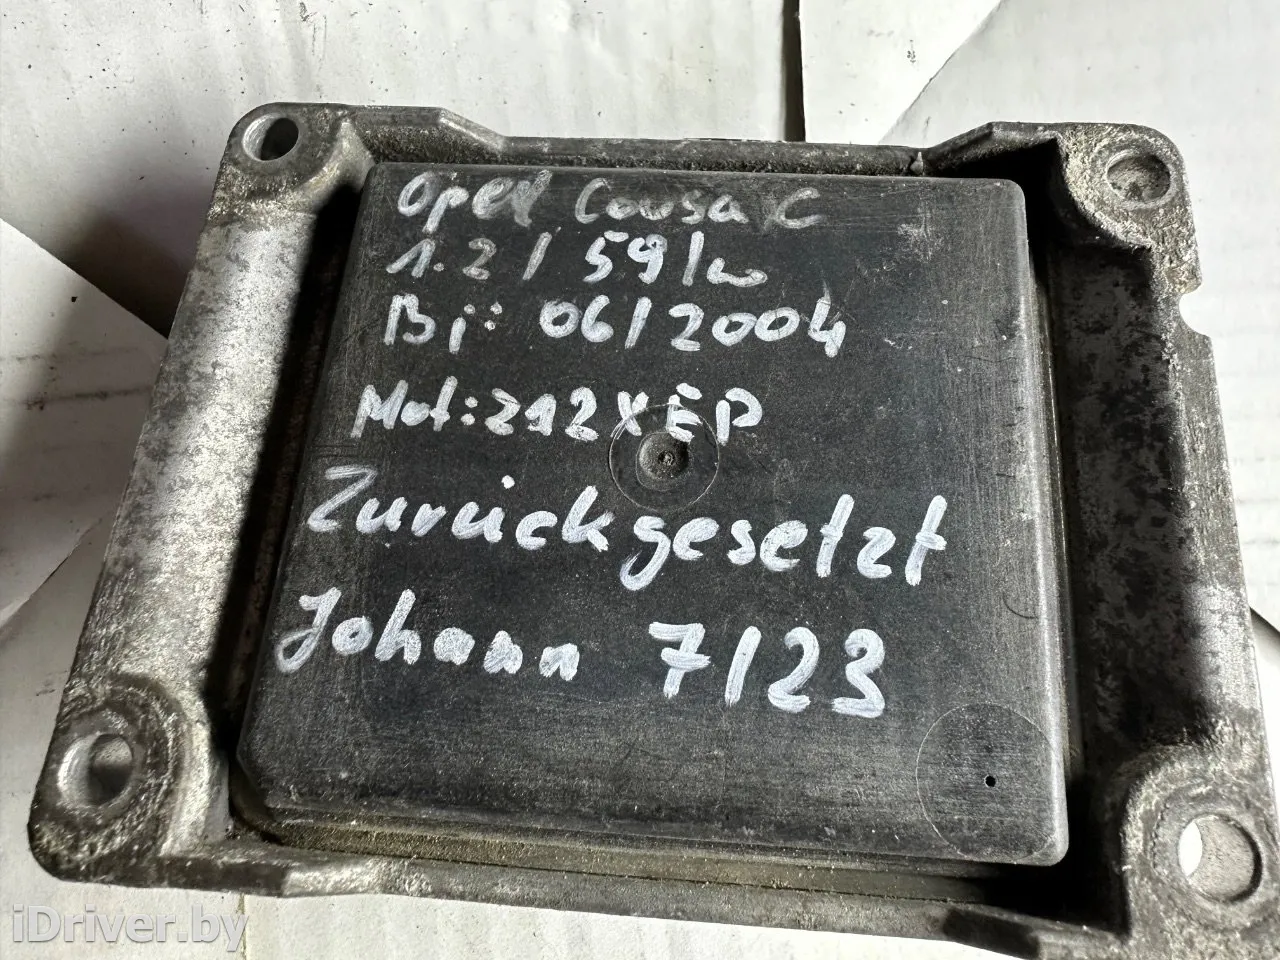 Opel Corsa C
1.2 / 59 kw
Bj: 06/2004
Mot: Z12XEP
Zurückgesetzt
Johann 7/23
iDriver.by